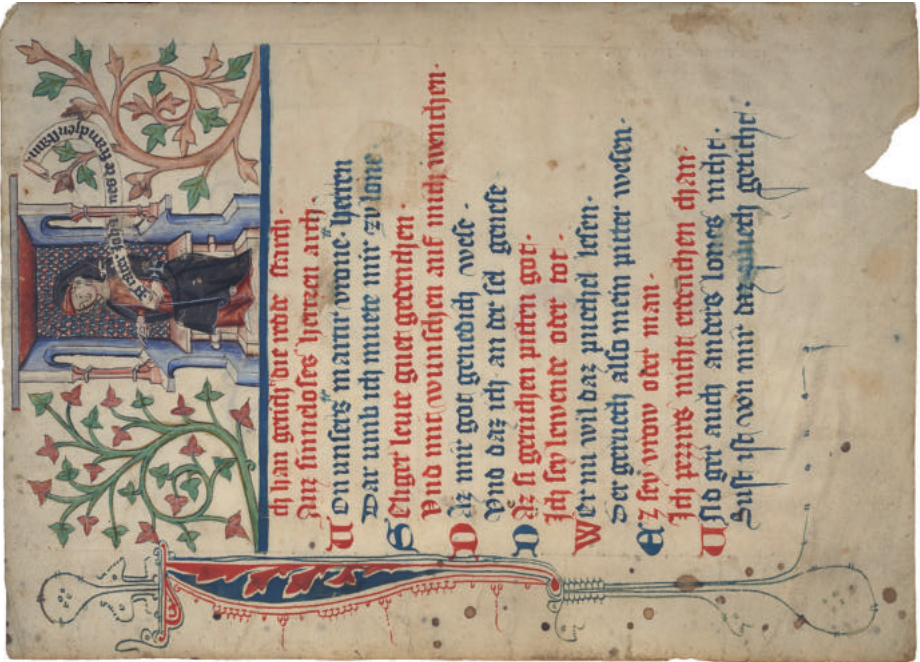 pruder Johannes de franchenstain
Ich han gericht die rede starch·
Auz sinneloses herzen arch·
Von unsers martir vrone· herren
Dar umb ich muete mir zu lone·
Seliger leute guet gedenchen·
Vnd mit wunschen auf mich wenchen·
Daz mir got genedich wese·
Vnd daz ich an der sel genese
Daz si geruchen piten got·
Ich sey lewente oder tot·
Wer nu wil daz puechel lesen·
Der geruech also mein piter wesen·
Ez sey vrow oder man·
Ich pezzers nicht erdenchen chan·
Und ger auch anders lones nicht·
Sust ist von mir daz puech gericht·